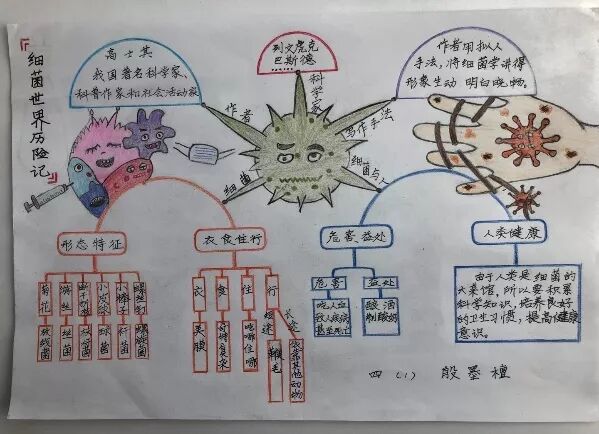 细菌世界历险记
高士其
我国著名科学家、
科普作家和社会活动家
列文虎克
巴斯德
……
作者用拟人
手法,将细菌学讲得
形象生动 明白晓畅。
作者
科学家
写作手法
细菌
细菌与人
形态特征
衣食住行
危害、益处
人类健康
菊花
放线菌
丝菌
球菌
小棒子
杆菌
螺丝钉
螺旋菌
衣
荚膜
食
住
行
短途
鞭毛
长途
依靠其他动物
危害
吃人血
致人疾病
甚至死亡
益处
酿酒
制酸奶
由于人类是细菌的
大菜馆,所以要积累
科学知识,培养良好
的卫生习惯,提高健康
意识。
四(1) 殷墨檀